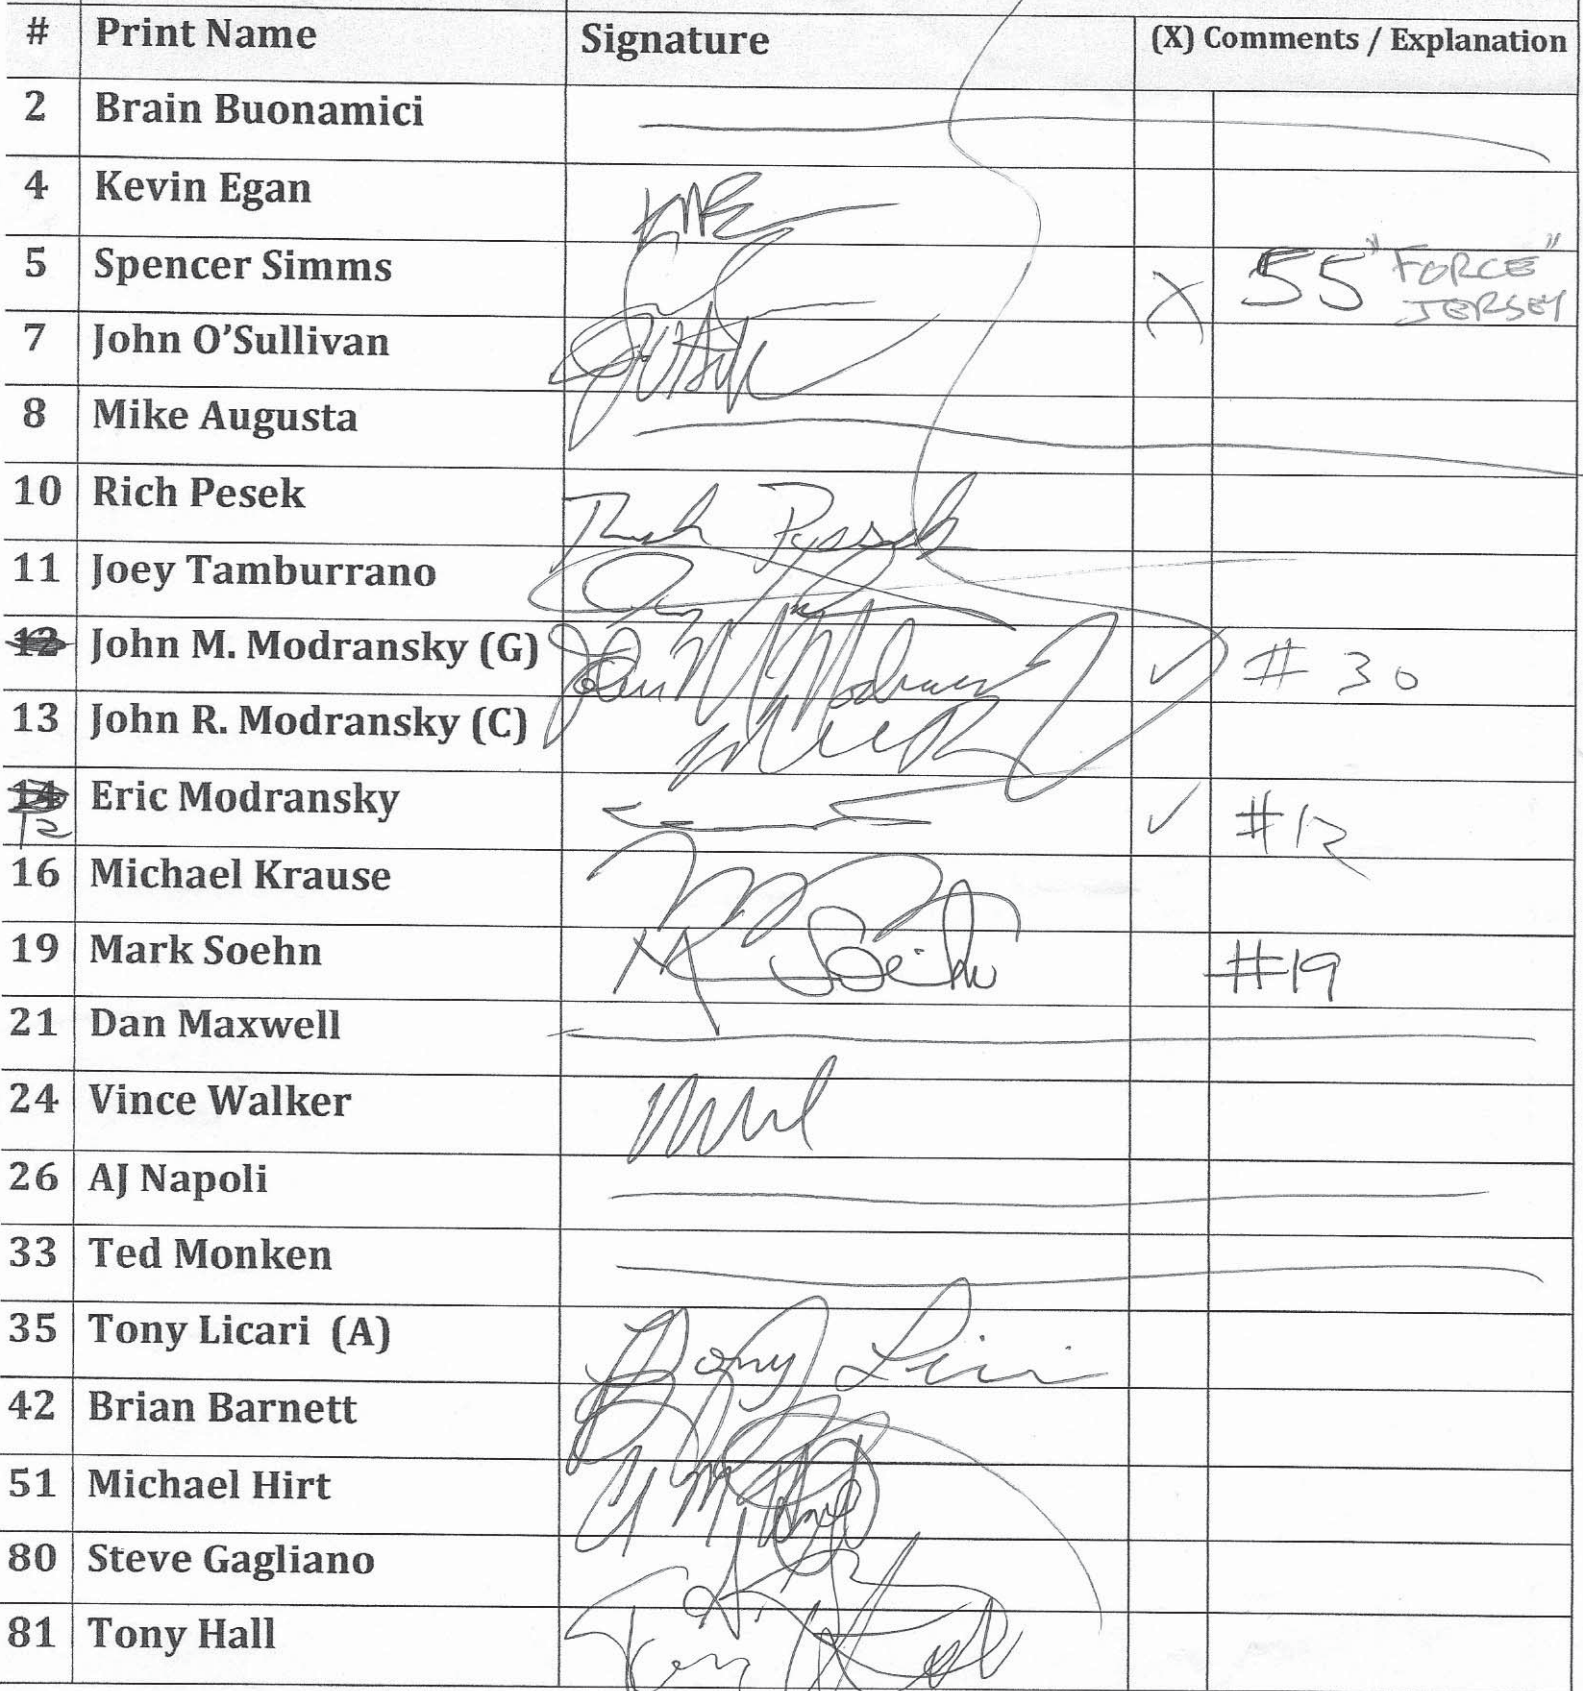 # Print Name Signature (X) Comments / Explanation
2 Brain Buonamici
4 Kevin Egan KME
5 Spencer Simms X 55 "FORCE" JERSEY
7 John O'Sullivan
8 Mike Augusta
10 Rich Pesek
11 Joey Tamburrano
12 John M. Modransky (G) John M Modransky ✓ # 30
13 John R. Modransky (C)
14 12 Eric Modransky ✓ #12
16 Michael Krause
19 Mark Soehn #19
21 Dan Maxwell
24 Vince Walker
26 AJ Napoli
33 Ted Monken
35 Tony Licari (A) Tony Licari
42 Brian Barnett
51 Michael Hirt
80 Steve Gagliano
81 Tony Hall